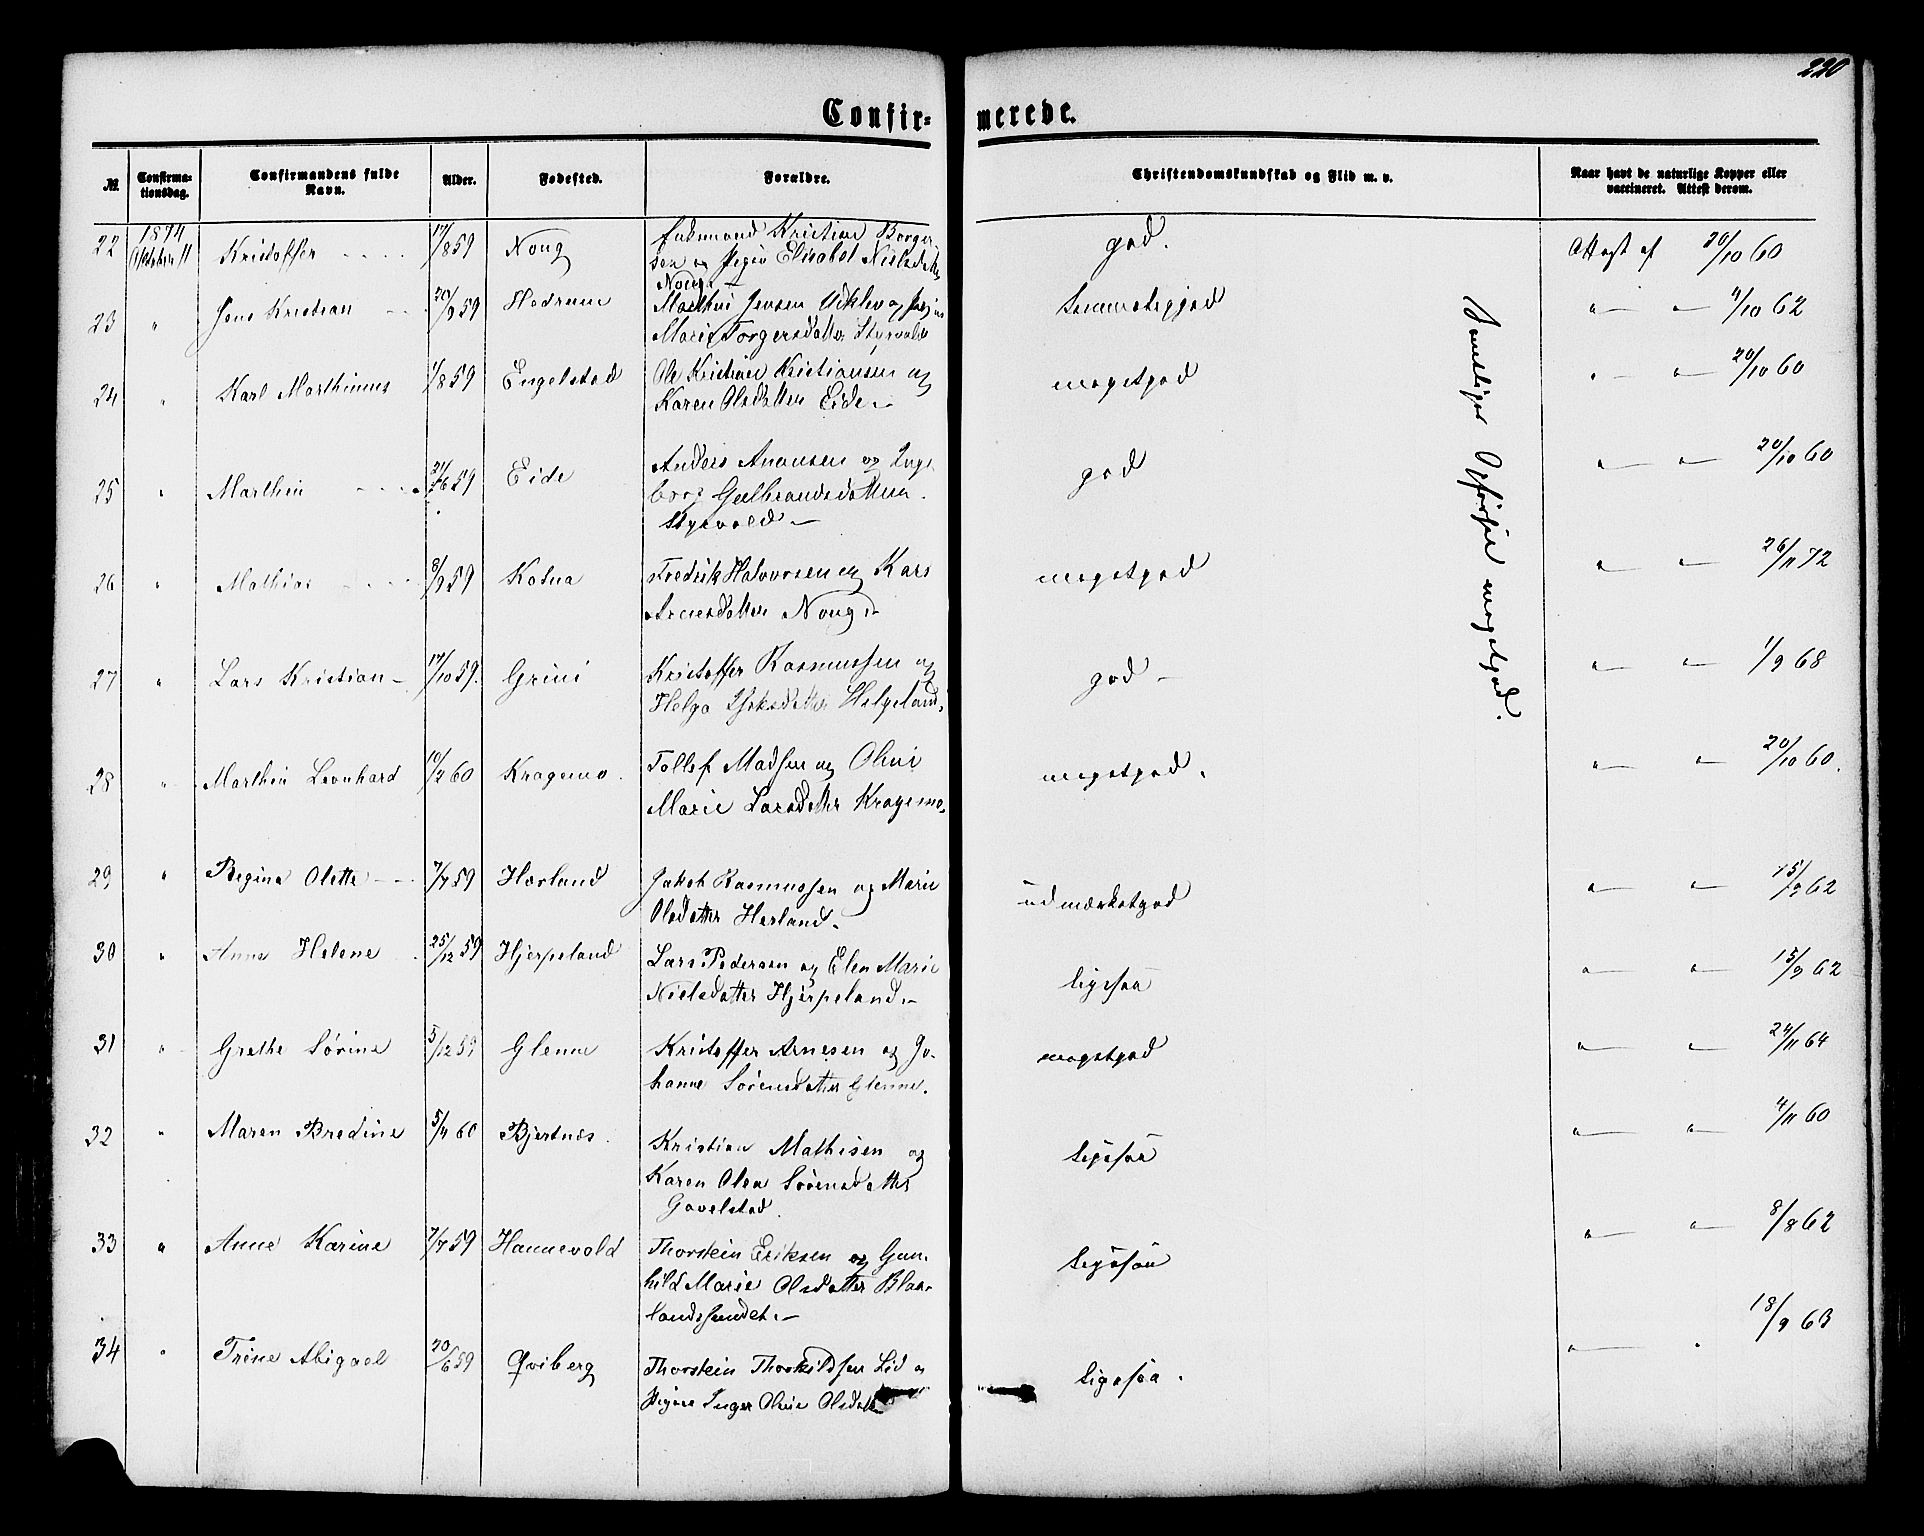 220
Confir-
merede.
№.
Confirma-
tionsdag.
Confirmandens fulde
Navn.
Alder.
Fødested.
Forældre.
Christendomskundskab og Flid m. v.
Naar havt de naturlige Kopper eller
vaccineret. Attest derom.
22 1874 Kristoffer 17/8 59 Noug Kristian Borger
sen Pigen Elisabet god. Attest af 20/10 60
Noug
23 " Jens Kristian 20/9 59 Hedrum Marthin Jensen og
Marie Torgersdatter Styrvold 4/10 62
24 " Karl Marthinus 1/8 59 Engelstad Ole Kristian Kristiansen og
Karen Olsdatter Eide megetgod " " 20/10 60
25 " Marthin 21/6 59 Eide Anders Anansen og Inge
borg Gulbrandsdatter
Styrvold god " " 20/10 60
26 " Mathias 8/9 59 Kolua Fredrik Halvorsen og Kars
Arnesdatter Noug megetgod " " 26/11 72
27 " Lars Kristian 17/10 59. Grini Kristoffer Rasmussen og
Helga Helgeland god " " 1/9 68
28 " Marthin Leonhard 10/2 60 Kragemo. Tollef Madsen og Oline
Marie Larsdatter Kragemo megetgod. " " 20/10 60.
29 " Regine Olette 7/7 59 Hærland Jakob Rasmussen og Marie
Olsdatter Herland. udmærketgod " " 15/9 62
30 " Anne Helene 25/12 59 Hjerpeland Lars Pedersen og Elen Marie
Nielsdatter Hjerpeland. ligesaa " " 15/9 62
31 " Grethe Sørine 5/12 59 Glenne Kristoffer Arnesen og Jo-
hanne Sørensdatter Glenne. megetgod " " 24/11 64
32 " Maren Bredine 5/4 60 Bjertnæs. Kristian Mathisen og
Karen Olea Sørensdatter
Gavelstad. ligesaa " " 4/11 60
33 " Anne Karine 7/7 59 Hannevold Thorstein Eriksen og Gun-
hild Marie Olsdatter Blaa-
landssundet. ligesaa " " 8/8 62
34 " Trine Abigael 20/6 59 Qviberg Thorstein Thorkildsen Lid og
Pigen Inger Oline Olsdatter ligesaa. " " 18/9 63
Samtliges Opførsel megetgod.